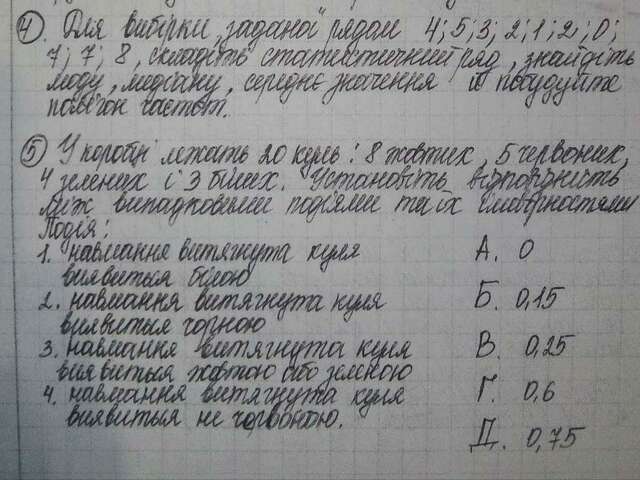 4. Для вибірки, заданої рядом 4; 5; 3; 2; 1; 2; 0;
7; 7; 8, складіть статистичний ряд, знайдіть
моду, медіану, середнє значення й побудуйте
полігон частот.
5 У коробці лежать 20 куль: 8 жовтих, 5 червоних,
4 зелених і 3 білих. Установіть відповідність
між випадковими подіями та їх імовірностями
Подія:
1. навмання витягнута куля
виявиться білою
А. 0
2. навмання витягнута куля
виявиться чорною
Б. 0,15
3. навмання витягнута куля
виявиться жовтою або зеленою
В. 0,25
4. навмання витягнута куля
виявиться не червоною.
Г. 0,6
Д. 0,75